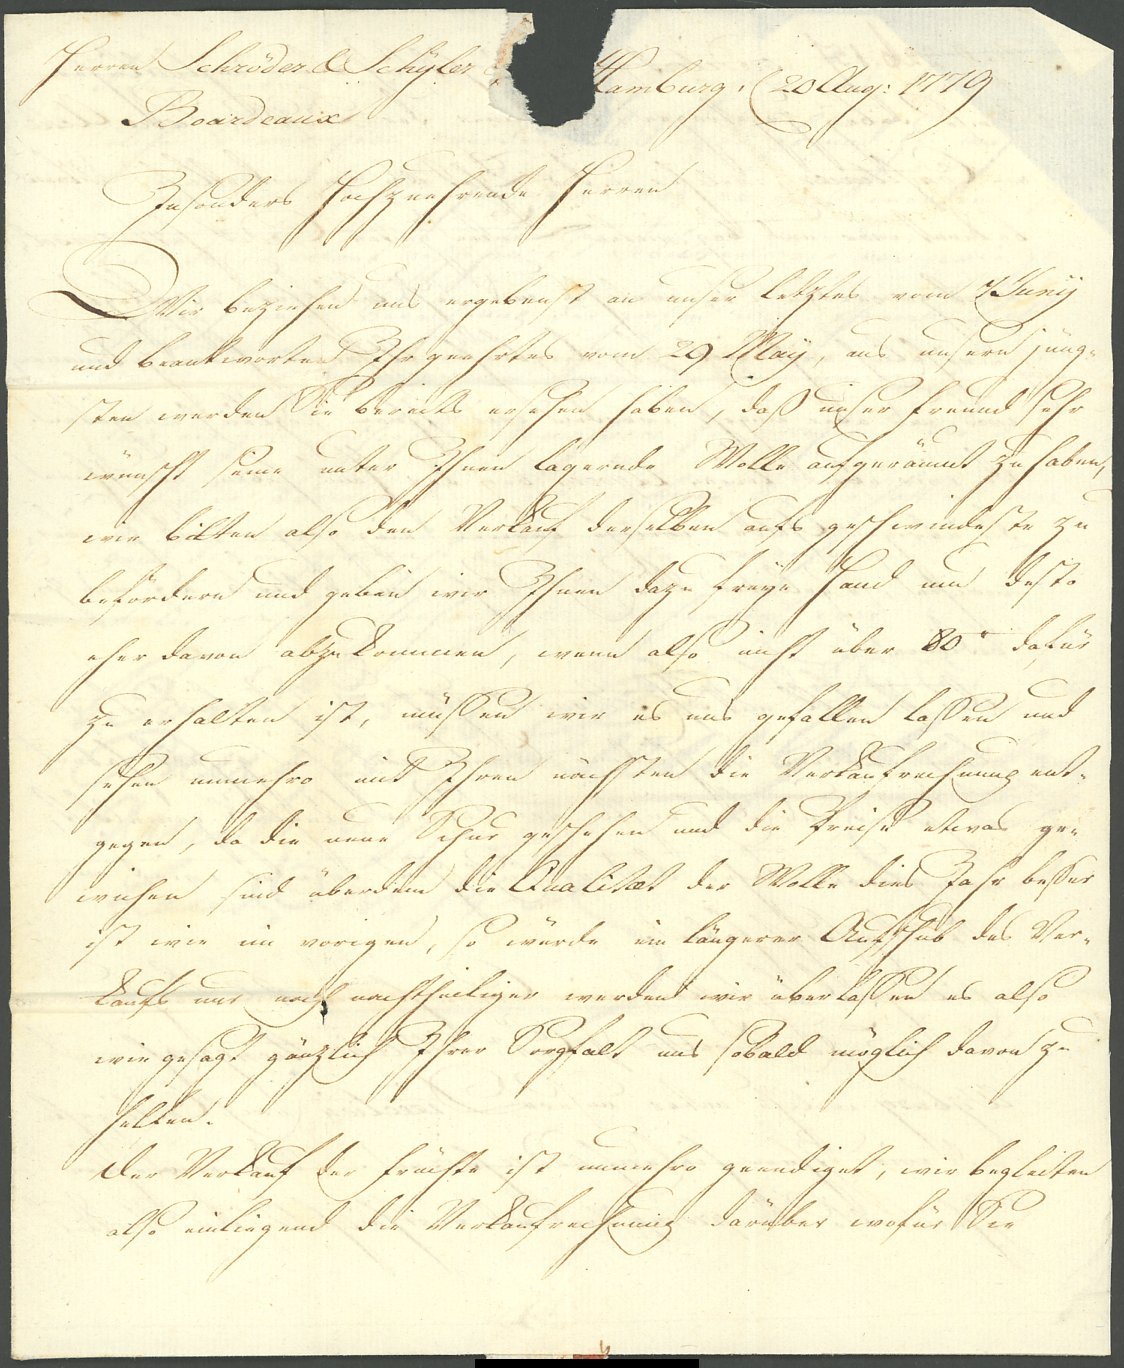 Herren Schröder & Schÿler & Hamburg, 20 Aug: 1779
Bourdeaux
Insonders Hochzuehrende Herren
Wir beziehen uns ergebenst an unser letztes vom Junÿ
und beantworten Ihr geehrtes vom 29 Maÿ, aus unsern jüng-
sten werden Sie bereits ersehen haben, daß unser Freund sehr
wünscht seine unter Ihnen lagernde Wolle aufgeräumt zu haben,
wir bitten also den Verkauf derselben aufs geschwindeste zu
befördern und geben wir Ihnen dazu freye Hand um desto
eher davon abzukommen, wenn also nicht über 80 dafür
zu erhalten ist, müßen wir es uns gefallen laßen und
sehen nunmehro mit Ihren nächsten die Verkaufrechnung ent-
gegen, da die neue Schur geschehen und die Preise etwas ge-
wichen sind überdem die Qualitæt der Wolle dies Jahr beßer
ist wie im vorigen, so würde ein längerer Aufschub des Ver-
kaufs nur noch nachtheiliger werden wir überlaßen es also
wie gesagt gänzlich Ihrer Sorgfalt uns sobald möglich davon zu
helfen.
Der Verkauf der Früchte ist nunmehro geendiget, wir begleiten
also einliegend die Verkaufrechnung darüber wofür Sie